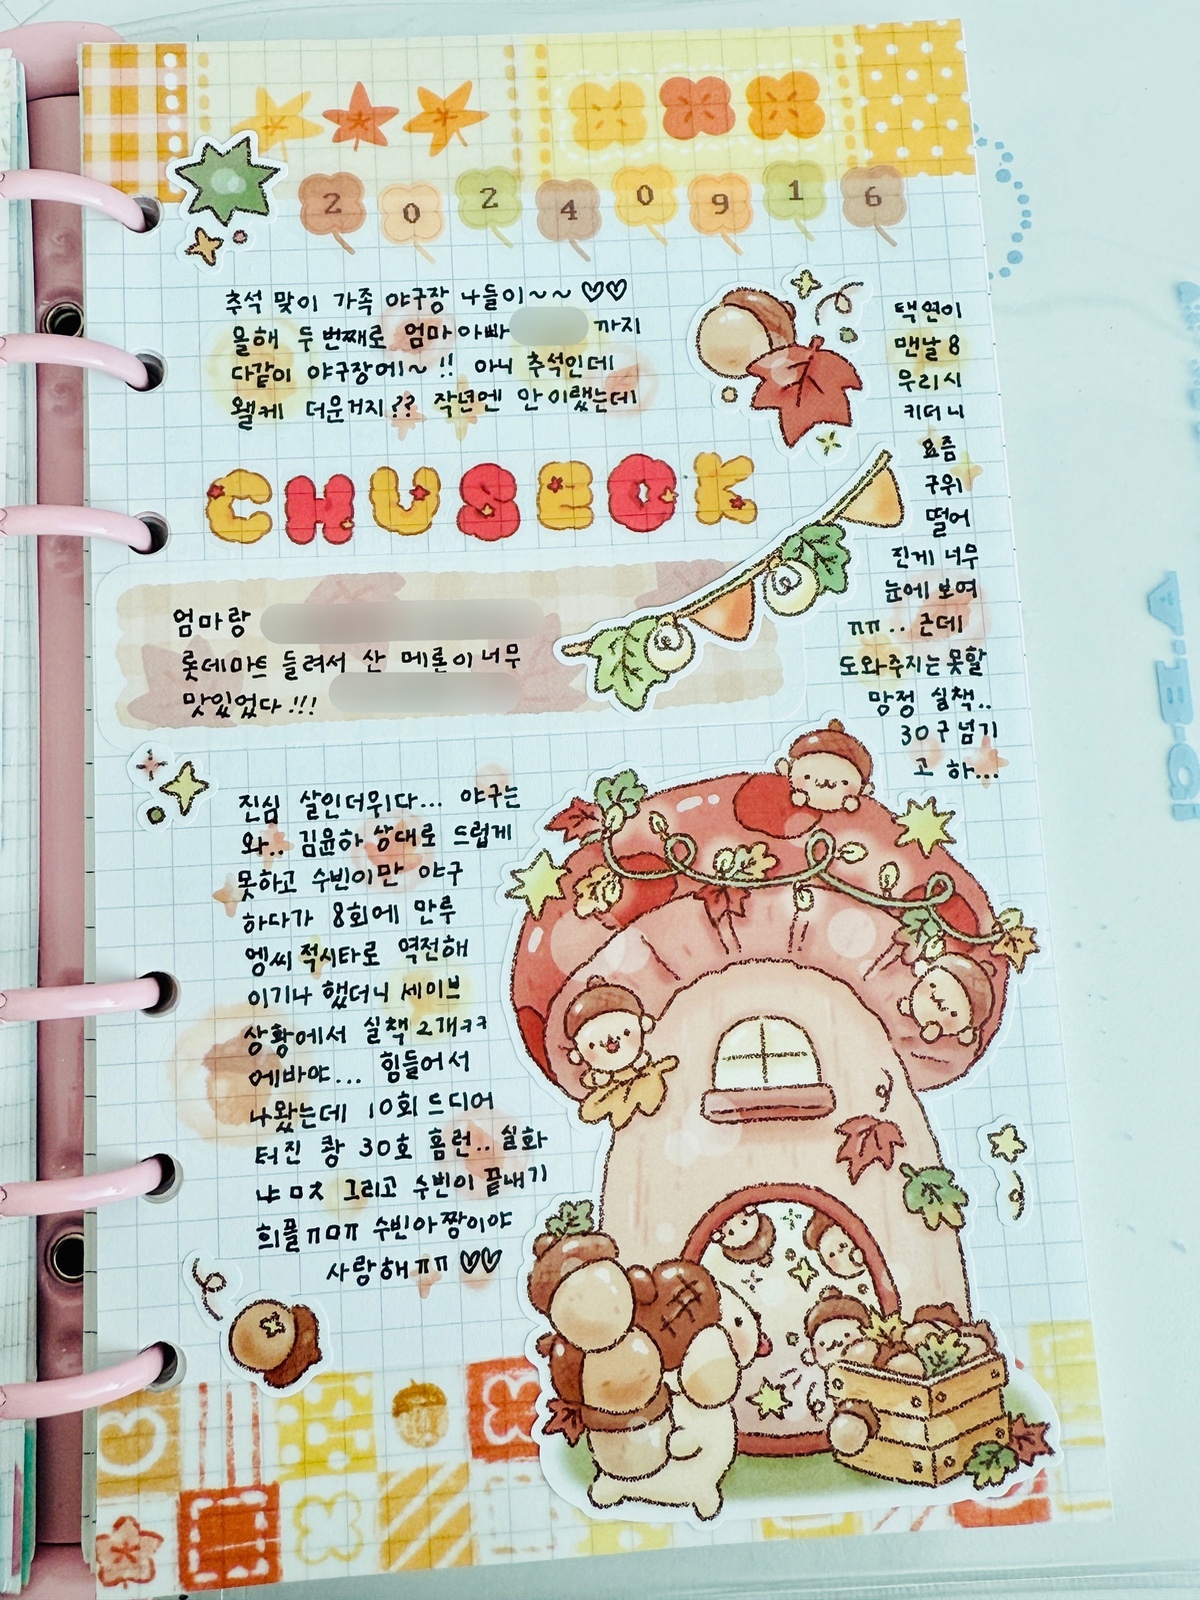 20240916
추석 맞이 가족 야구장 나들이~~♡♡
올해 두번째로 엄마아빠 까지
다같이 야구장에~!! 아니 추석인데
왤케 더운거지?? 작년엔 안이랬는데
CHUSEOK
엄마랑
롯데마트 들려서 산 메론이너무
맛있었다!!!
택연이
맨날 8
우리시
키더니
요즘
구위
떨어
진게 너무
눈에 보여
ㅠㅠ.. 근데
도와주지는못할
망정 실책..
30구넘기
고 하...
진심 살인더위다... 야구는
와.. 김윤하상대로 드럽게
못하고 수빈이만 야구
하다가 8회에 만루
엥씨적시타로 역전해
이기나 했더니 세이브
상황에서 실책2개ㅋㅋ
에바야... 힘들어서
나왔는데 10회 드디어
터진 쾅 30호 홈런.. 실화
냐ㅁㅊ 그리고 수빈이 끝내기
희플ㅠㅁㅠ 수빈아짱이야
사랑해ㅠㅠ♡♡